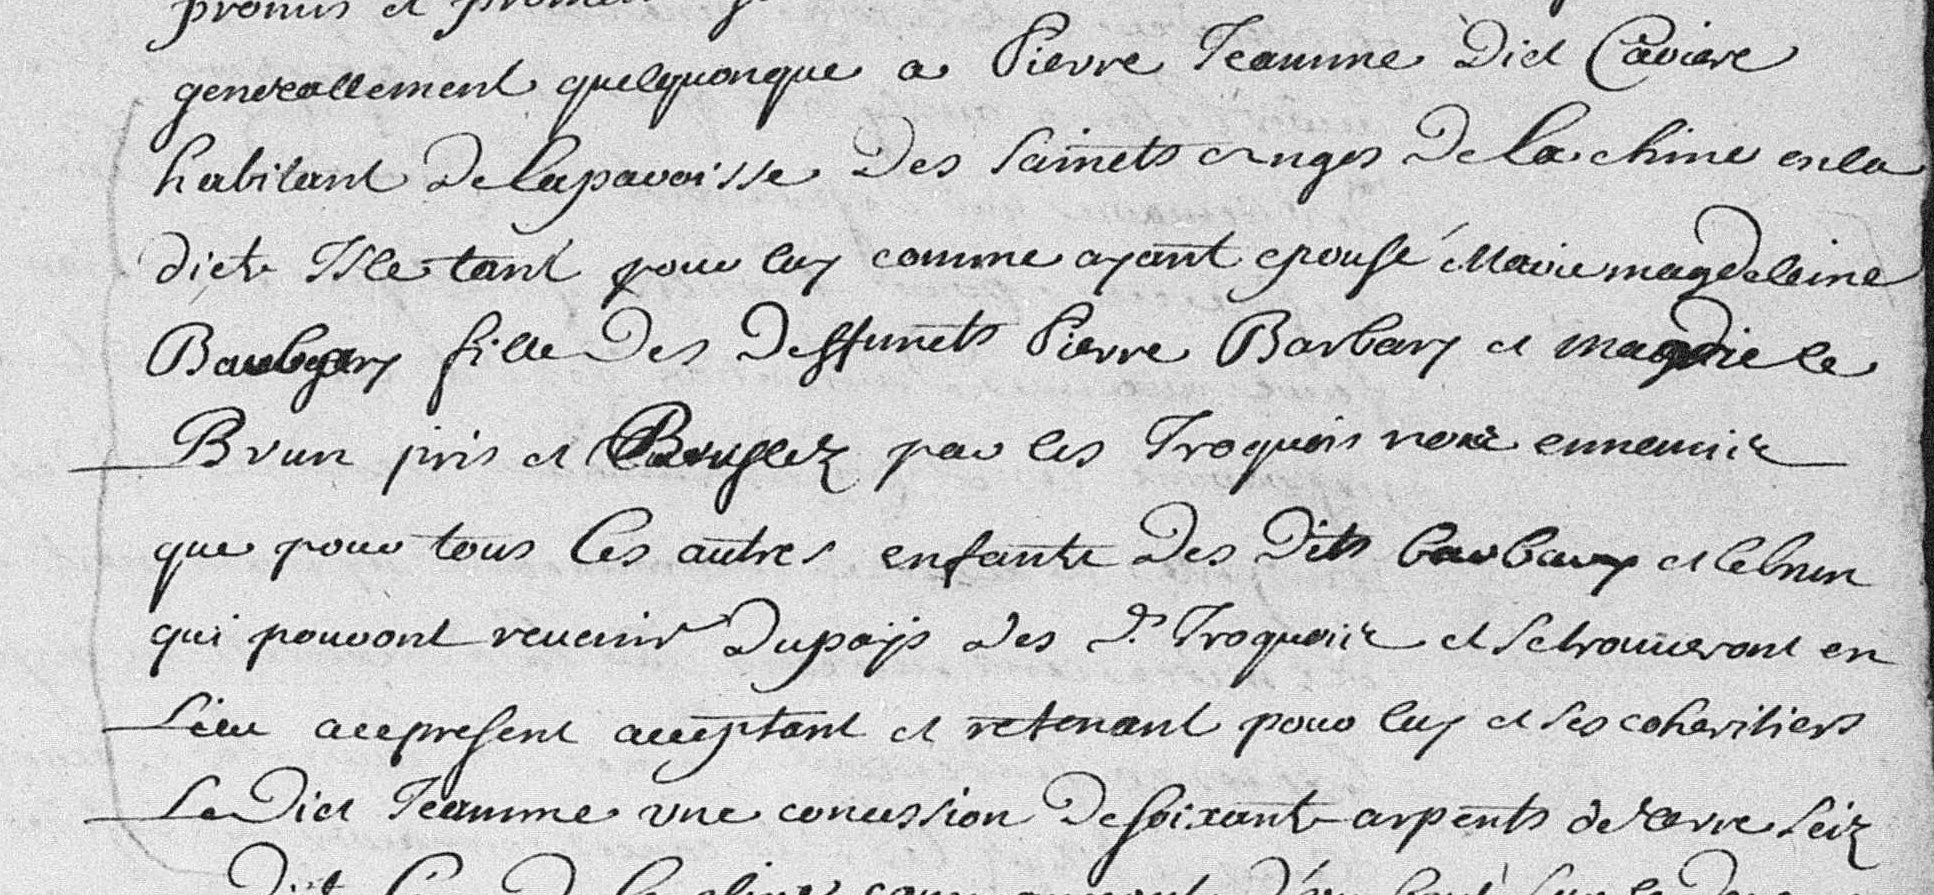 promis et promet
generallement quelquonque a Pierre Jeaunne Dict Caviere
habitant De la paroisse Des Saincts anges De la chine en la
dicte Isle tant pour luy comme ayant epousé Marie magdeleine
Barbary fille Des Deffuncts Pierre Barbary et magdie le
Brun pris et Bruslez par les Iroquois nos ennemis
que pour tous les autres enfants Des Dits barbary et lebrun
qui pouront revenir Du païs des d.s Iroquois et se trouveront en
Lieu ace present acceptant et retenant pour luy et ses coheritiers
Le Dict Jeaunne une concession De soixante arpents de terre Seiz